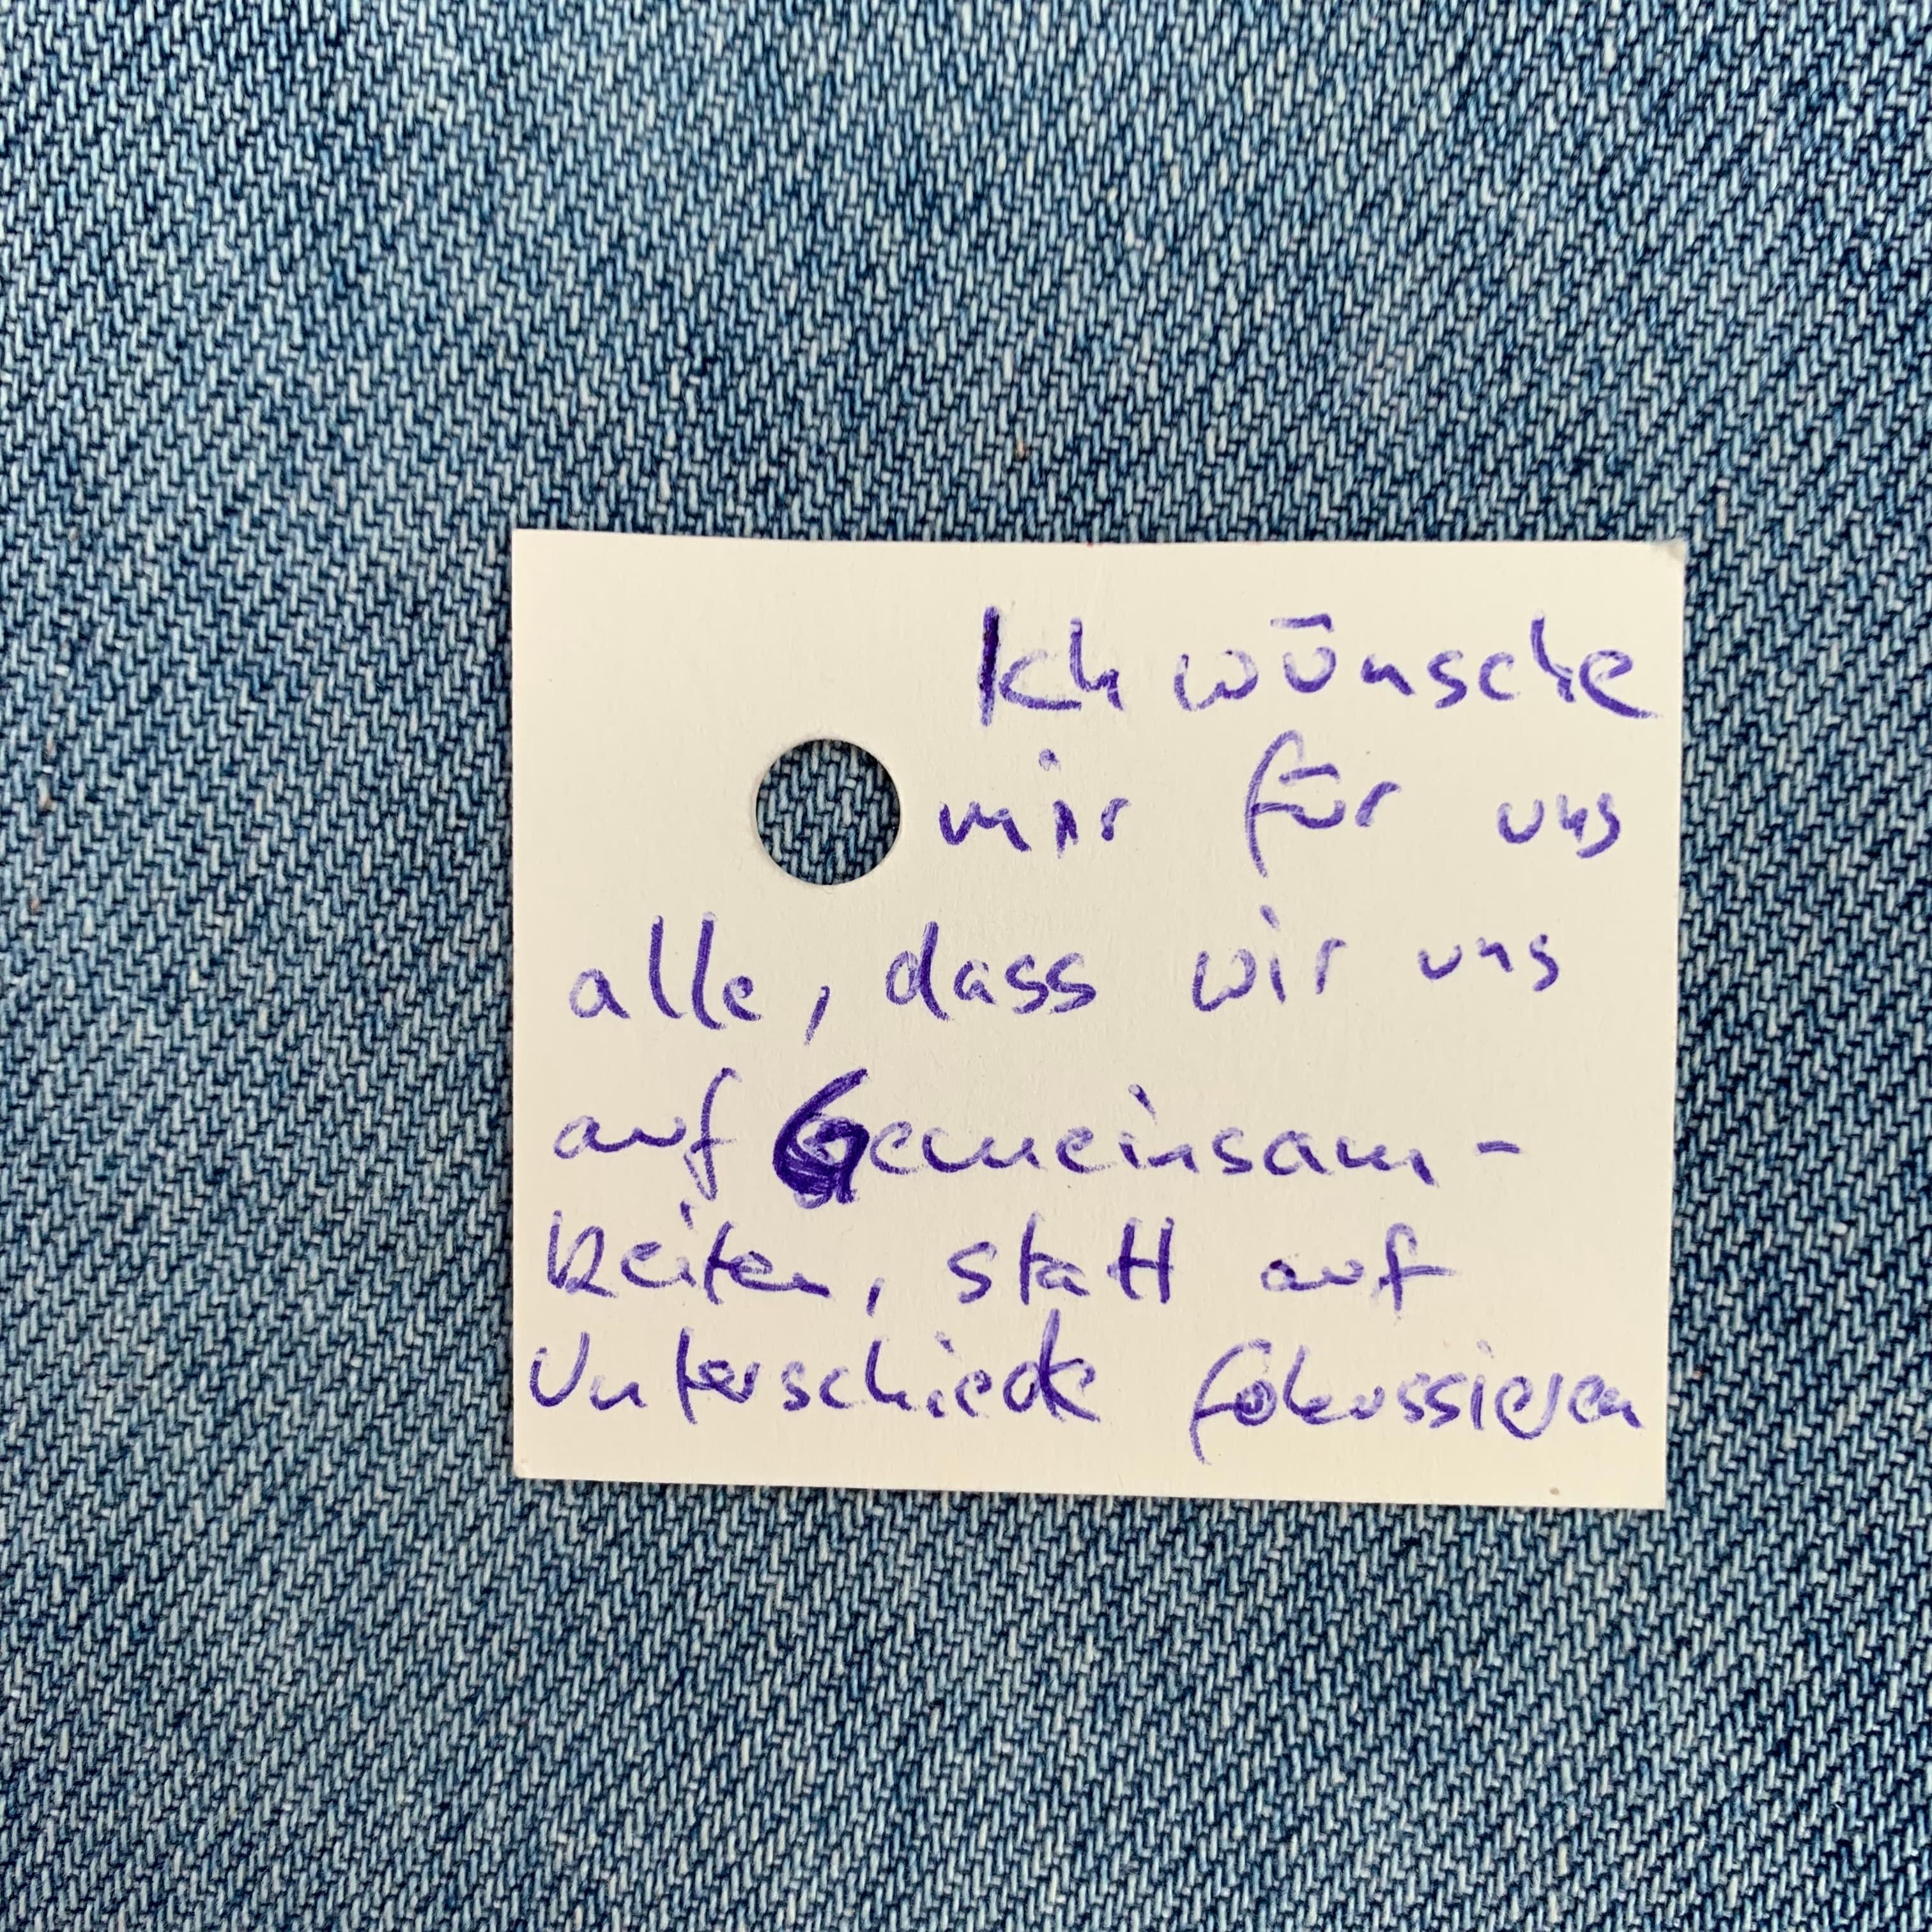 Ich wünsche
mir für uns
alle, dass wir uns
auf Gemeinsam-
keiten, statt auf
Unterschiede fokussieren